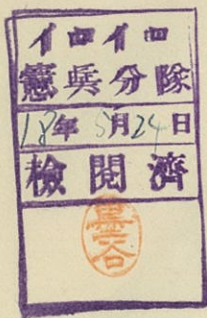 イロイロ
憲兵分隊
18年5月24日
檢閲濟